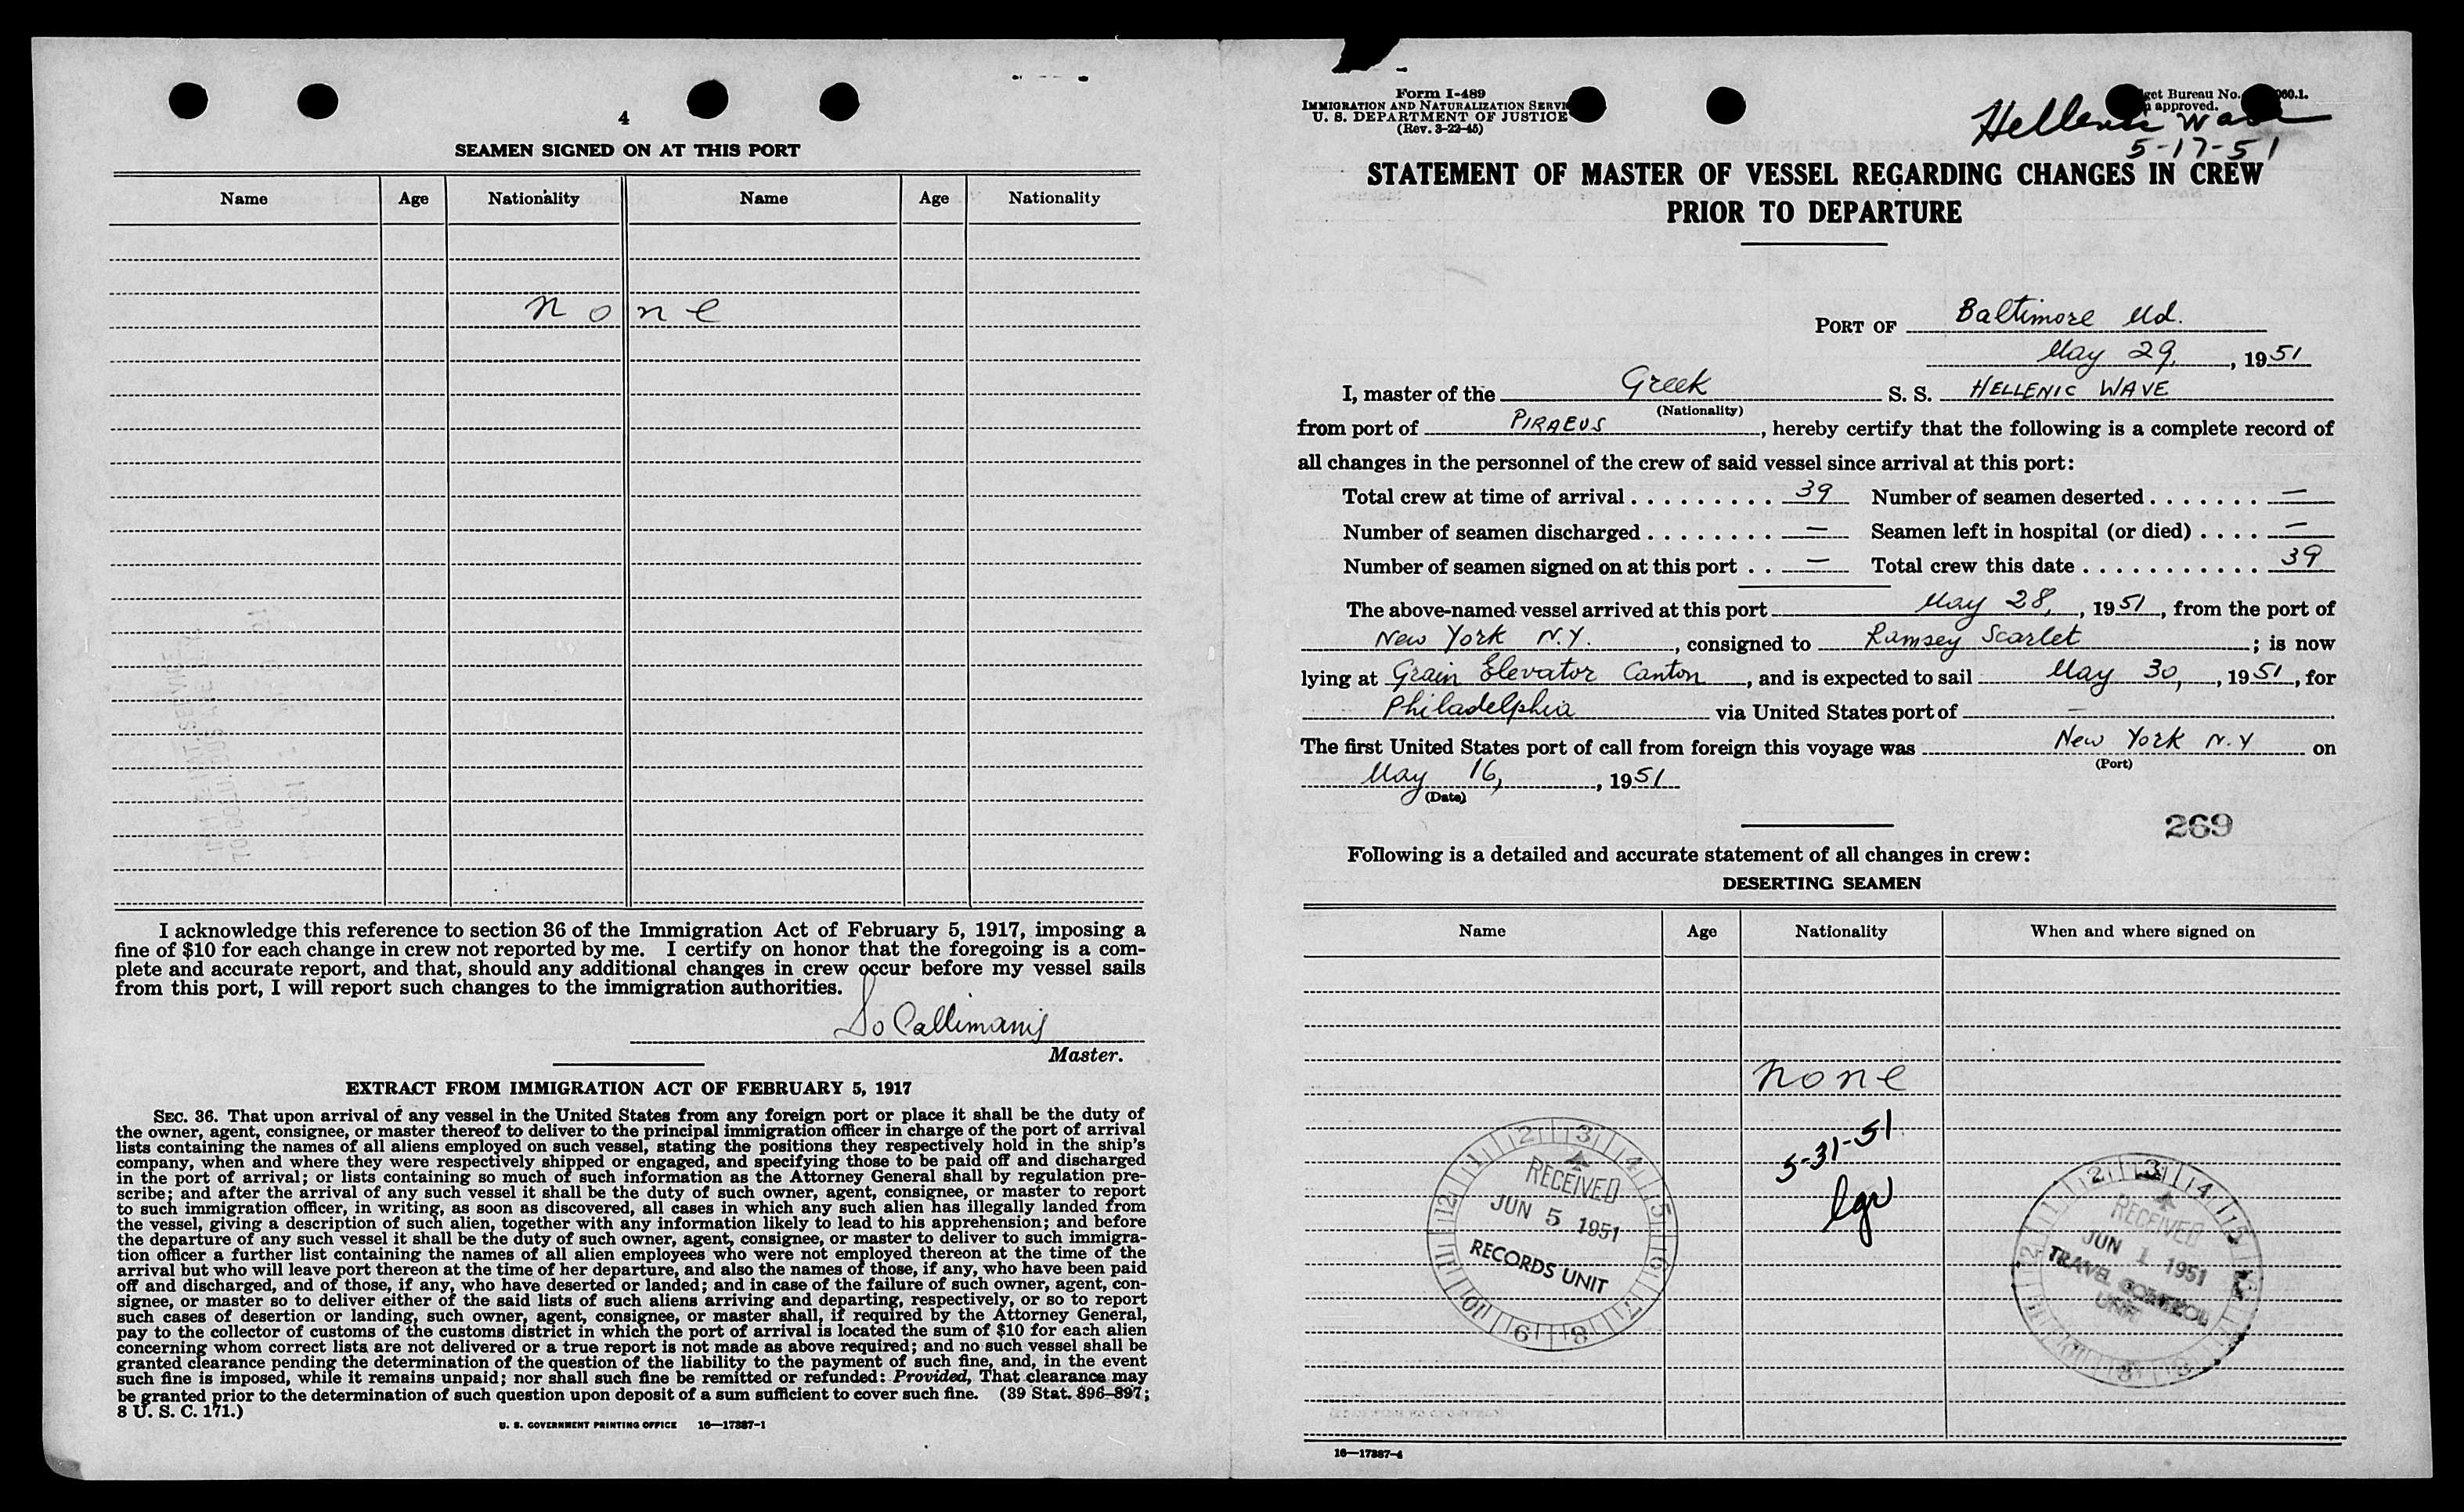 4
SEAMEN SIGNED ON AT THIS PORT
Name Age Nationality Name Age Nationality
none
I acknowledge this reference to section 36 of the Immigration Act of February 5, 1917, imposing a
fine of $10 for each change in crew not reported by me. I certify on honor that the foregoing is a com-
plete and accurate report, and that, should any additional changes in crew occur before my vessel sails
from this port, I will report such changes to the immigration authorities.
Callimanis
Master.
EXTRACT FROM IMMIGRATION ACT OF FEBRUARY 5, 1917
SEC. 36. That upon arrival of any vessel in the United States from any foreign port or place it shall be the duty of
the owner, agent, consignee, or master thereof to deliver to the principal immigration officer in charge of the port of arrival
lists containing the names of all aliens employed on such vessel, stating the positions they respectively hold in the ship's
company, when and where they were respectively shipped or engaged, and specifying those to be paid off and discharged
in the port of arrival; or lists containing so much of such information as the Attorney General shall by regulation pre-
scribe; and after the arrival of any such vessel it shall be the duty of such owner, agent, consignee, or master to report
to such immigration officer, in writing, as soon as discovered, all cases in which any such alien has illegally landed from
the vessel, giving a description of such alien, together with any information likely to lead to his apprehension; and before
the departure of any such vessel it shall be the duty of such owner, agent, consignee, or master to deliver to such immigra-
tion officer a further list containing the names of all alien employees who were not employed thereon at the time of the
arrival but who will leave port thereon at the time of her departure, and also the names of those, if any, who have been paid
off and discharged, and of those, if any, who have deserted or landed; and in case of the failure of such owner, agent, con-
signee, or master so to deliver either of the said lists of such aliens arriving and departing, respectively, or so to report
such cases of desertion or landing, such owner, agent, consignee, or master shall, if required by the Attorney General,
pay to the collector of customs of the customs district in which the port of arrival is located the sum of $10 for each alien
concerning whom correct lists are not delivered or a true report is not made as above required; and no such vessel shall be
granted clearance pending the determination of the question of the liability to the payment of such fine, and, in the event
such fine is imposed, while it remains unpaid; nor shall such fine be remitted or refunded: Provided, That clearance may
be granted prior to the determination of such question upon deposit of a sum sufficient to cover such fine. (39 Stat. 896–897;
8 U. S. C. 171.)
U. S. GOVERNMENT PRINTING OFFICE 16—17387-1
Form I-489
IMMIGRATION AND NATURALIZATION SERVI
U. S. DEPARTMENT OF JUSTICE
(Rev. 3-22-45)
get Bureau No. 060.1.
approved.
Hellenic Wave
5-17-51
STATEMENT OF MASTER OF VESSEL REGARDING CHANGES IN CREW
PRIOR TO DEPARTURE
PORT OF Baltimore Md.
May 29, 1951
I, master of the Greek S. S. HELLENIC WAVE
(Nationality)
from port of PIRAEUS, hereby certify that the following is a complete record of
all changes in the personnel of the crew of said vessel since arrival at this port:
Total crew at time of arrival . . . . . . . . . 39 Number of seamen deserted . . . . . . . —
Number of seamen discharged . . . . . . . . — Seamen left in hospital (or died) . . . . —
Number of seamen signed on at this port . . — Total crew this date . . . . . . . . . . . 39
The above-named vessel arrived at this port May 28, 1951, from the port of
New York N.Y., consigned to Ramsey Scarlet; is now
lying at Grain Elevator Canton, and is expected to sail May 30, 1951, for
Philadelphia via United States port of —
The first United States port of call from foreign this voyage was New York N.Y on
(Port)
May 16, 1951
(Date)
269
Following is a detailed and accurate statement of all changes in crew:
DESERTING SEAMEN
Name Age Nationality When and where signed on
none
5-31-51
lgw
RECEIVED
JUN 5 1951
RECORDS UNIT
RECEIVED
JUN 1 1951
TRAVEL CONTROL
UNIT
16—17387-4